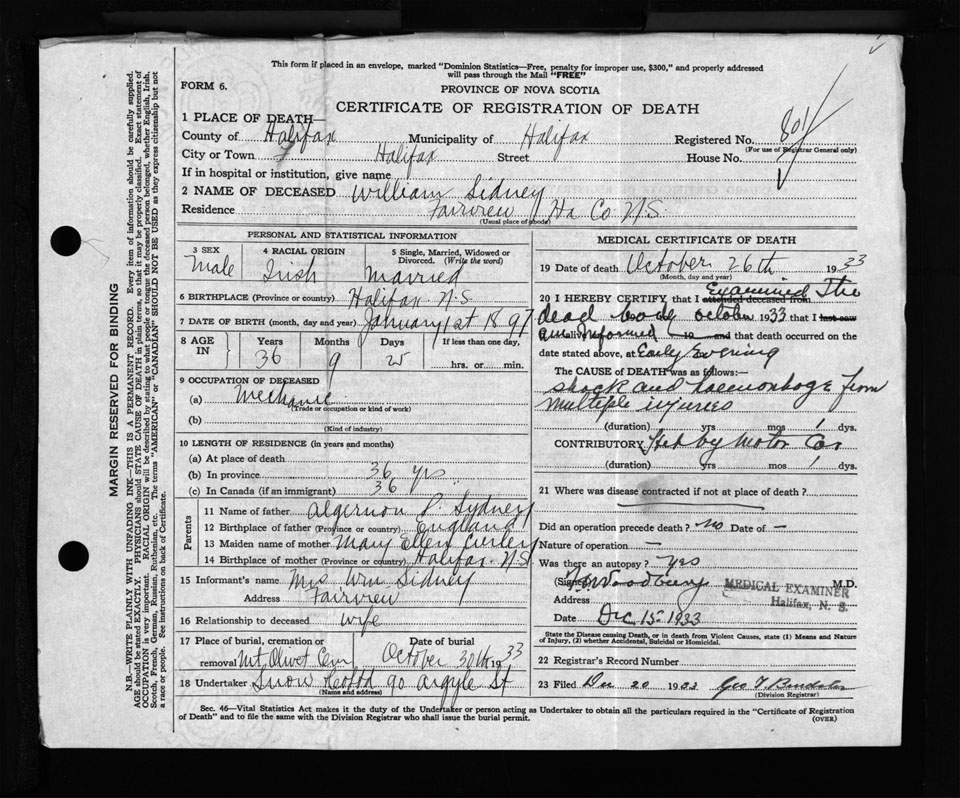 This form if placed in an envelope, marked "Dominion Statistics—Free, penalty for improper use, $300," and properly addressed
will pass through the Mail "FREE"
FORM 6.
PROVINCE OF NOVA SCOTIA
CERTIFICATE OF REGISTRATION OF DEATH
1 PLACE OF DEATH—
County of Halifax Municipality of Halifax Registered No. 801
(For use of Registrar General only)
City or Town Halifax Street House No.
If in hospital or institution, give name
2 NAME OF DECEASED William Sidney
Residence Fairview Ha Co N.S.
(Usual place of abode)
PERSONAL AND STATISTICAL INFORMATION
3 SEX 4 RACIAL ORIGIN 5 Single, Married, Widowed or
Divorced. (Write the word)
Male Irish Married
6 BIRTHPLACE (Province or country) Halifax N.S.
7 DATE OF BIRTH (month, day and year) January 1st 1897
8 AGE IN Years Months Days If less than one day,
36 9 25 hrs. or min.
9 OCCUPATION OF DECEASED
(a) Mechanic
(Trade or occupation or kind of work)
(b)
(Kind of industry)
10 LENGTH OF RESIDENCE (in years and months)
(a) At place of death
(b) In province 36 yrs
(c) In Canada (if an immigrant) 36
Parents
11 Name of father Algernon P. Sydney
12 Birthplace of father (Province or country) England
13 Maiden name of mother Mary Ellen Curley
14 Birthplace of mother (Province or country) Halifax N.S.
15 Informant's name Mrs Wm Sidney
Address Fairview
16 Relationship to deceased wife
17 Place of burial, cremation or Date of burial
removal Mt Olivet Cem October 30th 1933
18 Undertaker Snow 90 Argyle St
(Name and address)
MEDICAL CERTIFICATE OF DEATH
19 Date of death October 26th 1933
(Month, day and year)
20 I HEREBY CERTIFY that I attended deceased from Examined The
dead body october 1933 that I last saw
am Informed alive 19 and that death occurred on the
date stated above, at Early Evening
The CAUSE of DEATH was as follows:—
Shock and haemorrhage from
multiple injuries
(duration) yrs mos / dys.
CONTRIBUTORY Hit by Motor Car
(duration) yrs mos / dys.
21 Where was disease contracted if not at place of death?
Did an operation precede death? no Date of —
Nature of operation —
Was there an autopsy? Yes
(Signed) Woodbury M.D.
MEDICAL EXAMINER
Halifax, N. S.
Address
Date Dec 15 1933
State the Disease causing Death, or in death from Violent Causes, state (1) Means and Nature
of Injury, (2) whether Accidental, Suicidal or Homicidal.
22 Registrar's Record Number
23 Filed Dec 20 1933 Geo
(Division Registrar)
Sec. 46—Vital Statistics Act makes it the duty of the Undertaker or person acting as Undertaker to obtain all the particulars required in the "Certificate of Registration
of Death" and to file the same with the Division Registrar who shall issue the burial permit.
(OVER)
MARGIN RESERVED FOR BINDING
N.B.—WRITE PLAINLY WITH UNFADING INK—THIS IS A PERMANENT RECORD. Every item of information should be carefully supplied.
AGE should be stated EXACTLY. PHYSICIANS should STATE CAUSE OF DEATH in plain terms, so that it may be properly classified. Exact statement of
OCCUPATION is very important. RACIAL ORIGIN will be described by stating to what people or tongue the deceased person belonged, whether English, Irish,
Scotch, French, German, Russian, Ruthenian, etc. The terms "AMERICAN" or "CANADIAN" SHOULD NOT BE USED as they express citizenship but not
a race or people. See instructions on back of Certificate.